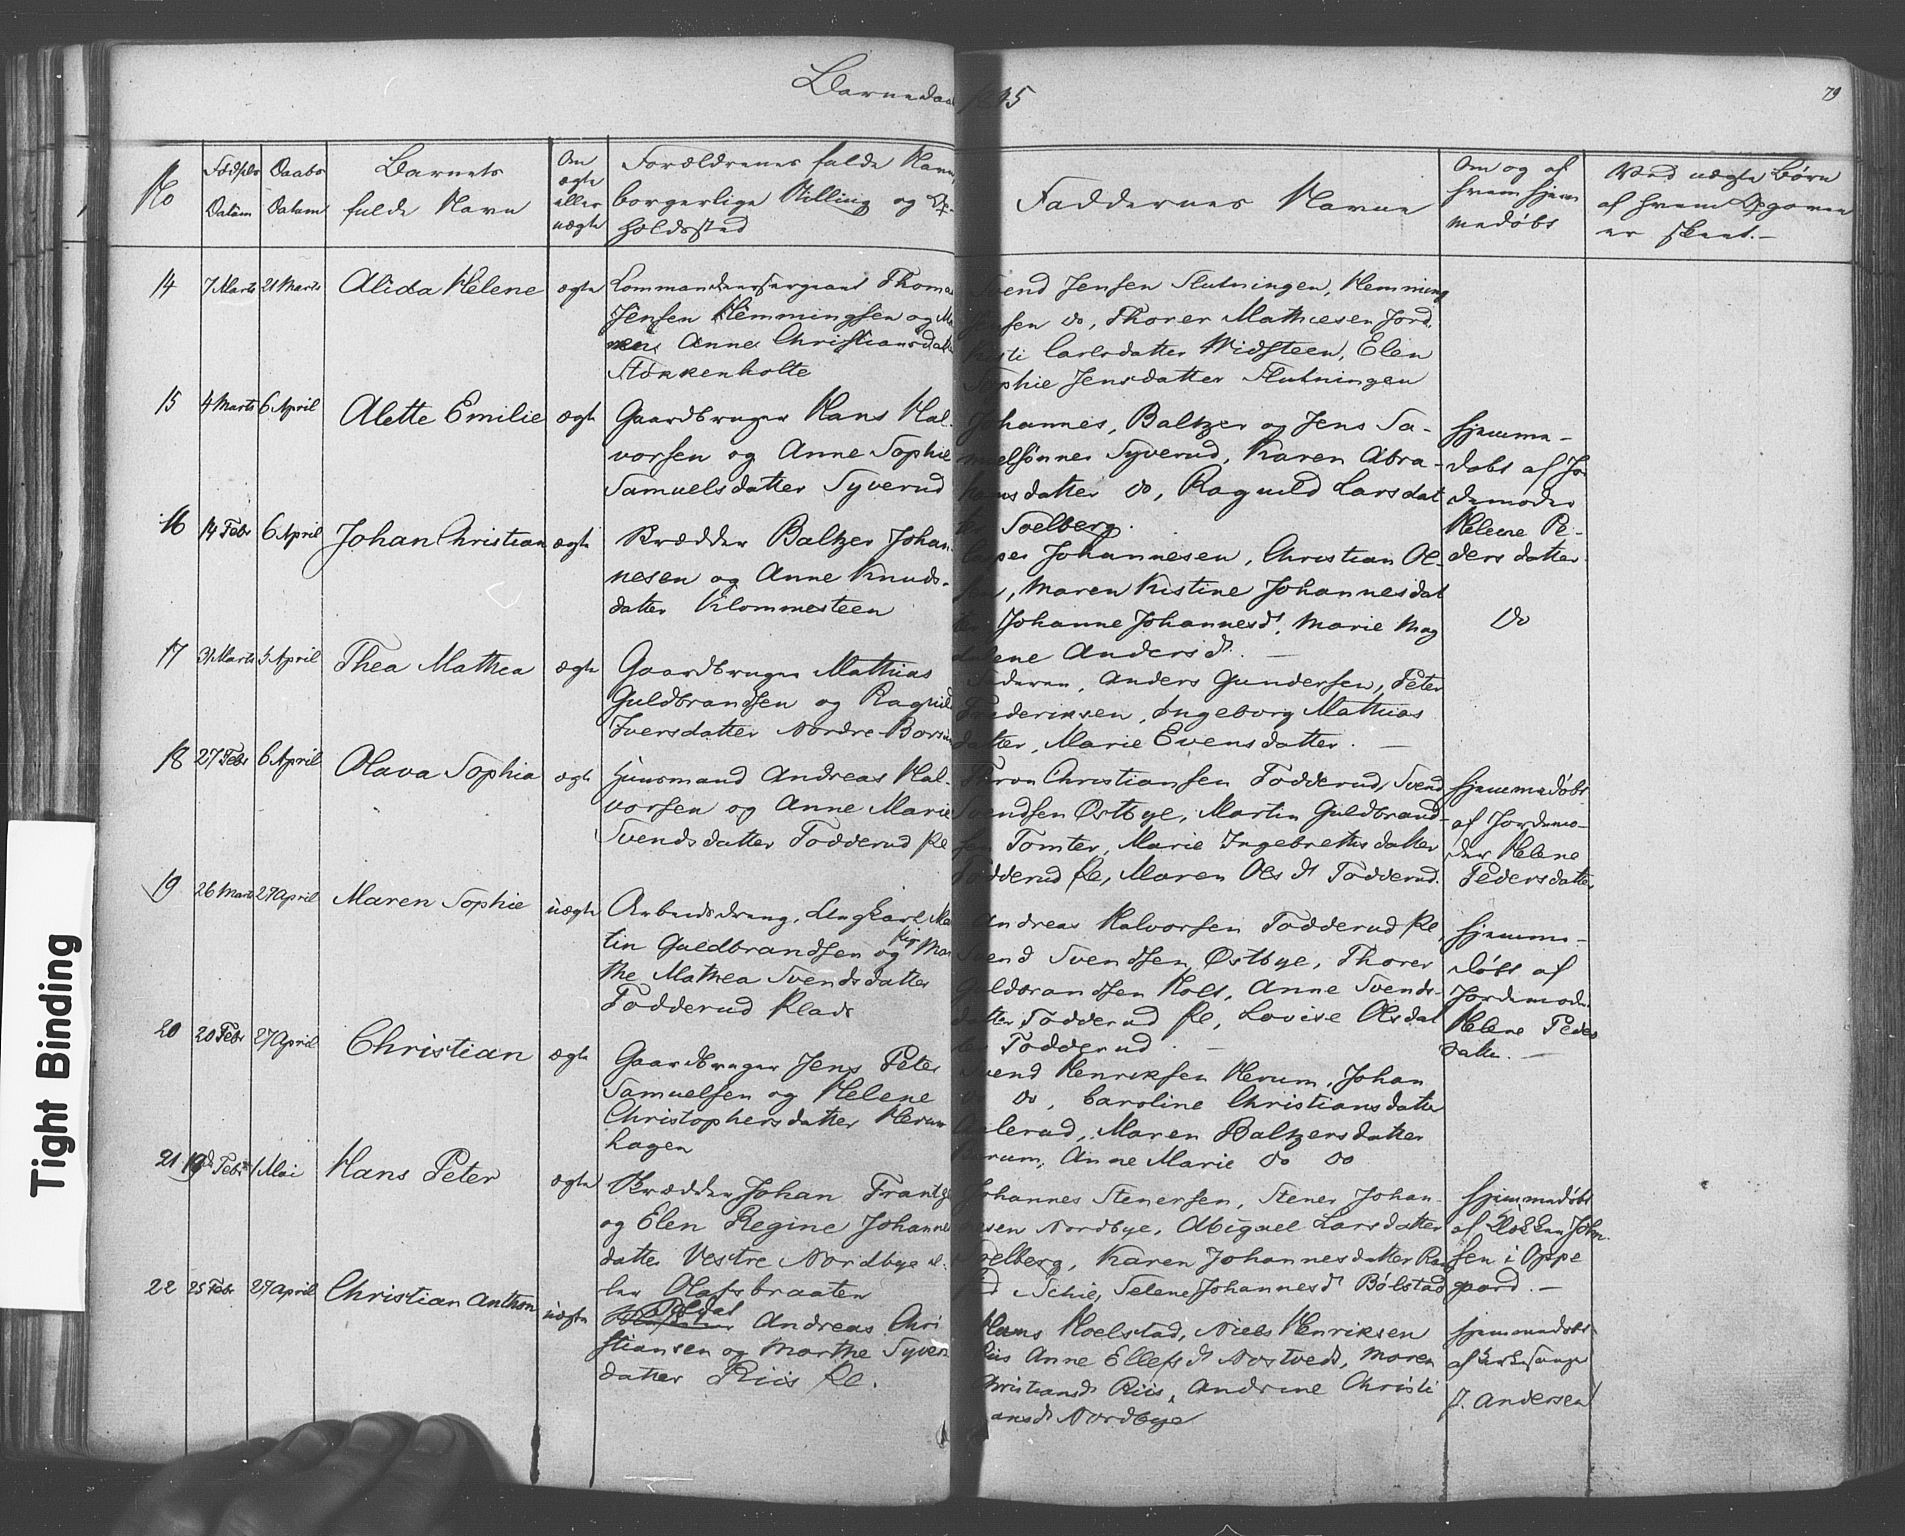 Barnedaab 1845
79
No
Fødsels Datum
Daabs Datum
Barnets fulde Navn
Om ægte eller uægte
Forældrenes fulde Navne, borgerlige Stilling og Opholdssted
Faddernes Navne
Om og af hvem hjemmedøbt
Ved uægte Børn af hvem Opgaven er skeet.-
14 7 Marts 21 Marts Alida Helene ægte
Commandeersergeant Thomas
Jensen Hemmingsen og Ma
Anne Christiansdatter
Stokkenholte
Svend Jensen Slutningen, Hemming
Jensen do, Thorer Mathiesen Jord.
Kisti Carlsdatter Midsteen, Elen
Sophie Jensdatter Slutningen
15 4 Marts 6 April Alette Emilie ægte
Gaardbruger Hans Hal-
vorsen og Anne Sophie
Samuelsdatter Syverud
Johannes, Baltzer og Jens Sa-
muelsønner Syverud, Karen Abra-
hamsdatter do, Ragnild Larsdat
ter Soelberg.
hjemme-
døbt af Jor
demoder
Helene Pe-
dersdatter
16 14 Febr 6 April Johan Christian ægte
Skrædder Baltzer Johan-
nesen og Anne Knuds-
datter Klommesteen
Casper Johannesen, Christian Ol-
sen, Maren Kistine Johannesdat
ter Johanne Johannesd, Marie Mag
dalene Andersd. -
do
17 31 Marts 5 April Thea Mathea ægte
Gaardbruger Mathias
Guldbrandsen og Ragnild
Iversdatter Nordre Børsum
Faderen, Anders Gundersen, Peter
Frederiksen, Ingeborg Mathias
datter, Marie Evensdatter. -
18 27 Febr 6 April Olava Sophia ægte
Huusmand Andreas Hal-
vorsen og Anne Marie
Svendsdatter Fodderud Pl
Thron Christiansen Fodderud, Svend
Svendsen Østbye, Martin Guldbrand-
sen Tomter, Marie Ingebretsdatter
Fodderud Pl, Maren Olsd Fodderud.
hjemmedøbt
af Jordemo-
der Helene
Pedersdatter
19 26 Marts 27 April Maren Sophie uægte
Arbeidsdreng, Ungkarl Mar
tin Guldbrandsen og Pige Mar
the Mathea Svendsdatter
Fodderud Plads
Andreas Halvorsen Fodderud Pl,
Svend Svendsen Østbye, Thorer
Guldbrandsen Hols, Anne Svends-
datter Fodderud Pl, Lovise Olsdat
ter Fodderud. -
hjemme-
døbt af
Jordemoder
Helene Peders
datter. -
20 20 Febr 27 April Christian ægte
Gaardbruger Jens Peter
Samuelsen og Helene
Christophersdatter Herum
hagen
Svend Henriksen Herum, Johan
do do, Caroline Christiansdatter
Maren Baltzersdatter
Herum, Anne Marie do do
21 19de Febr 1 Mai Hans Peter ægte
Skrædder Johan Frantz
og Elen Regine Johannes
datter Vestre Nordbye el-
ler Olafsbraaten
Johannes Stenersen, Stener Johan-
nesen Nordbye, Abigael Larsdatter
Soelberg, Karen Johannesdatter
i Schie, Selene Johannesd Bølstad
hjemmedøbt
af Klokker John
sen i Oppe
gaard. -
22 25 Febr 27 April Christian Anthon uægte
Soldat Andreas Chri
stiansen og Marthe Syvers
datter Riis Pl.
Hans Hoelstad, Niels Henriksen
Riis Anne Ellefsd Nostvedt, Maren
Christiansd Riis, Andrine Christi
ansd Nordbye
hjemmedøbt
af Kirkesanger
P. Andersen
Tight Binding